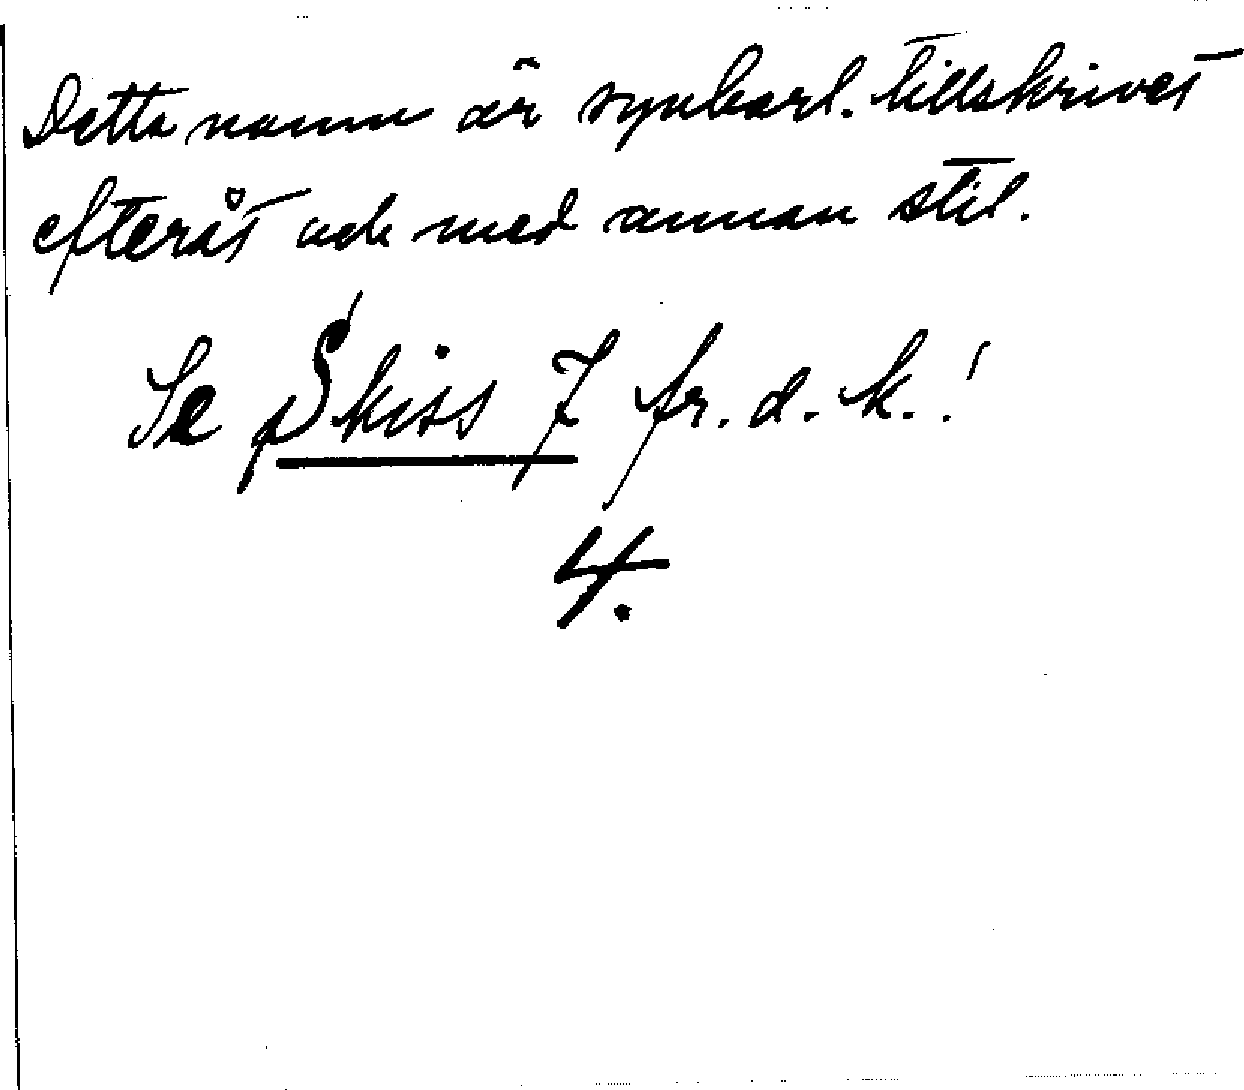 Detta namn är synbarl. tillskrivet
efteråt och med annan stil.
Se Skiss 7 fr. d. k.!
4.